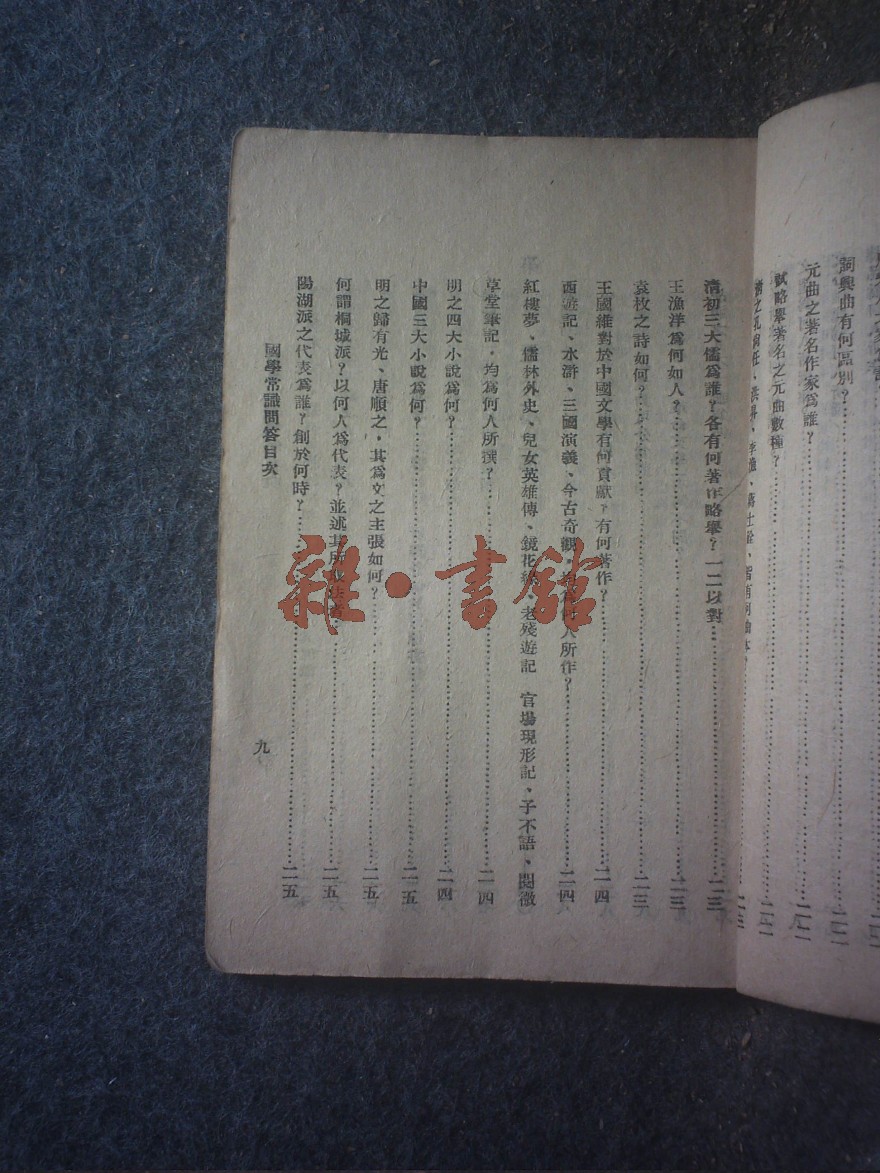 詞與曲有何區別？……二二
元曲之著名作家爲誰？……二二
試略舉著名之元曲數種？……二二
清初三大儒爲誰？各有何著作略舉？一二以對……二三
王漁洋爲何如人？……二三
袁枚之詩如何？……二三
王國維對於中國文學有何貢獻？有何著作？……二四
西遊記、水滸、三國演義、今古奇觀、均爲何人所作？……二四
紅樓夢、儒林外史、兒女英雄傳、鏡花緣、老殘遊記 官場現形記、子不語、閱微
草堂筆記，均爲何人所撰？……二四
明之四大小說爲何？……二四
中國三大小說爲何？……二五
明之歸有光、唐順之，其爲文之主張如何？……二五
何謂桐城派？以何人爲代表？並述其所……二五
陽湖派之代表爲誰？創於何時？……二五
國學常識問答目次
九
雜·書館